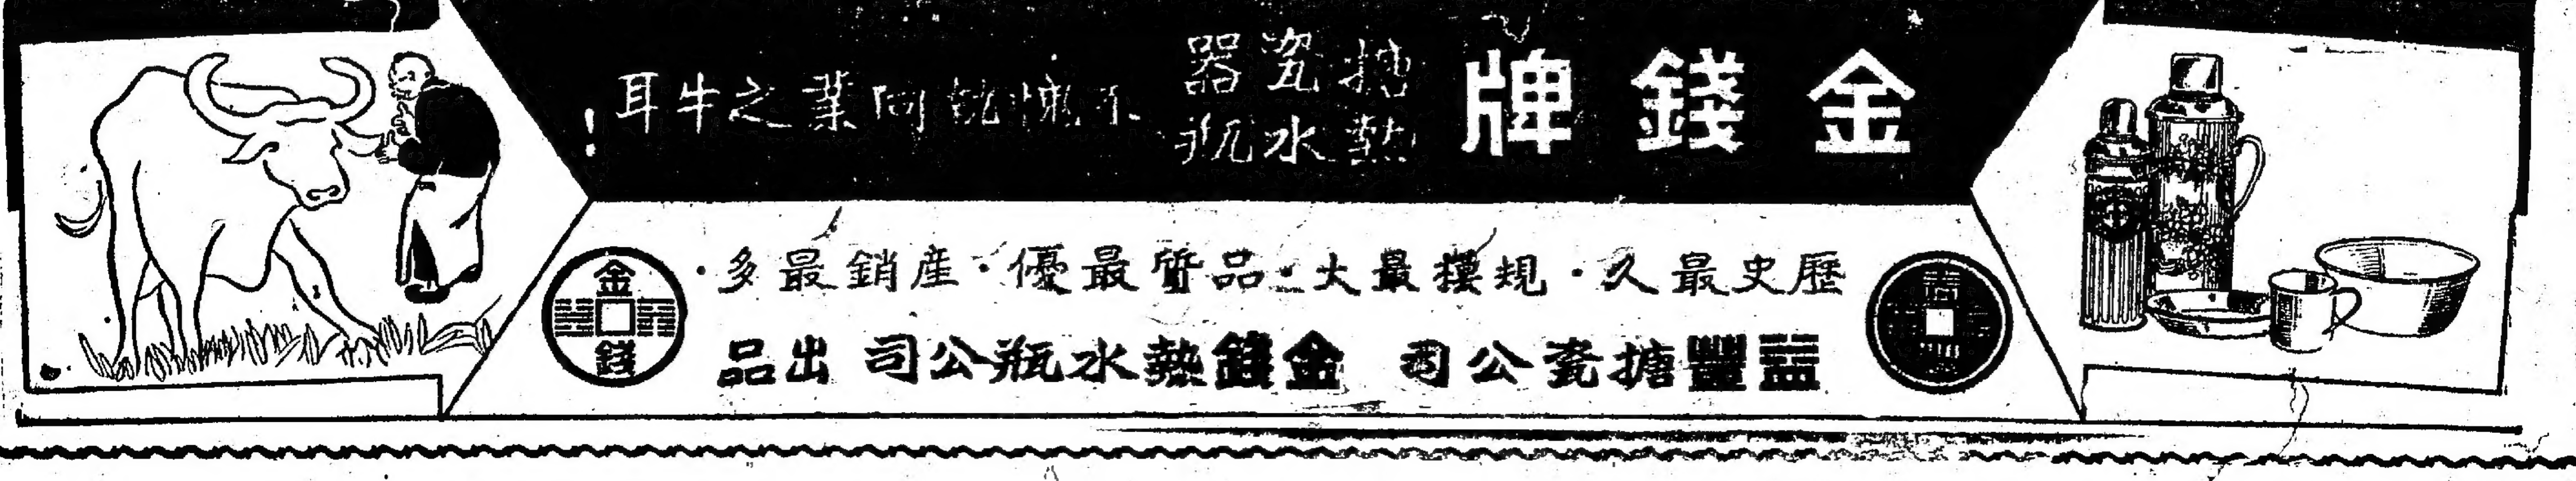 金錢牌
搪瓷器
熱水瓶
不愧執同業之牛耳！
歷史最久・規模最大・品質最優・產銷最多・
益豐搪瓷公司 金錢熱水瓶公司 出品
金錢